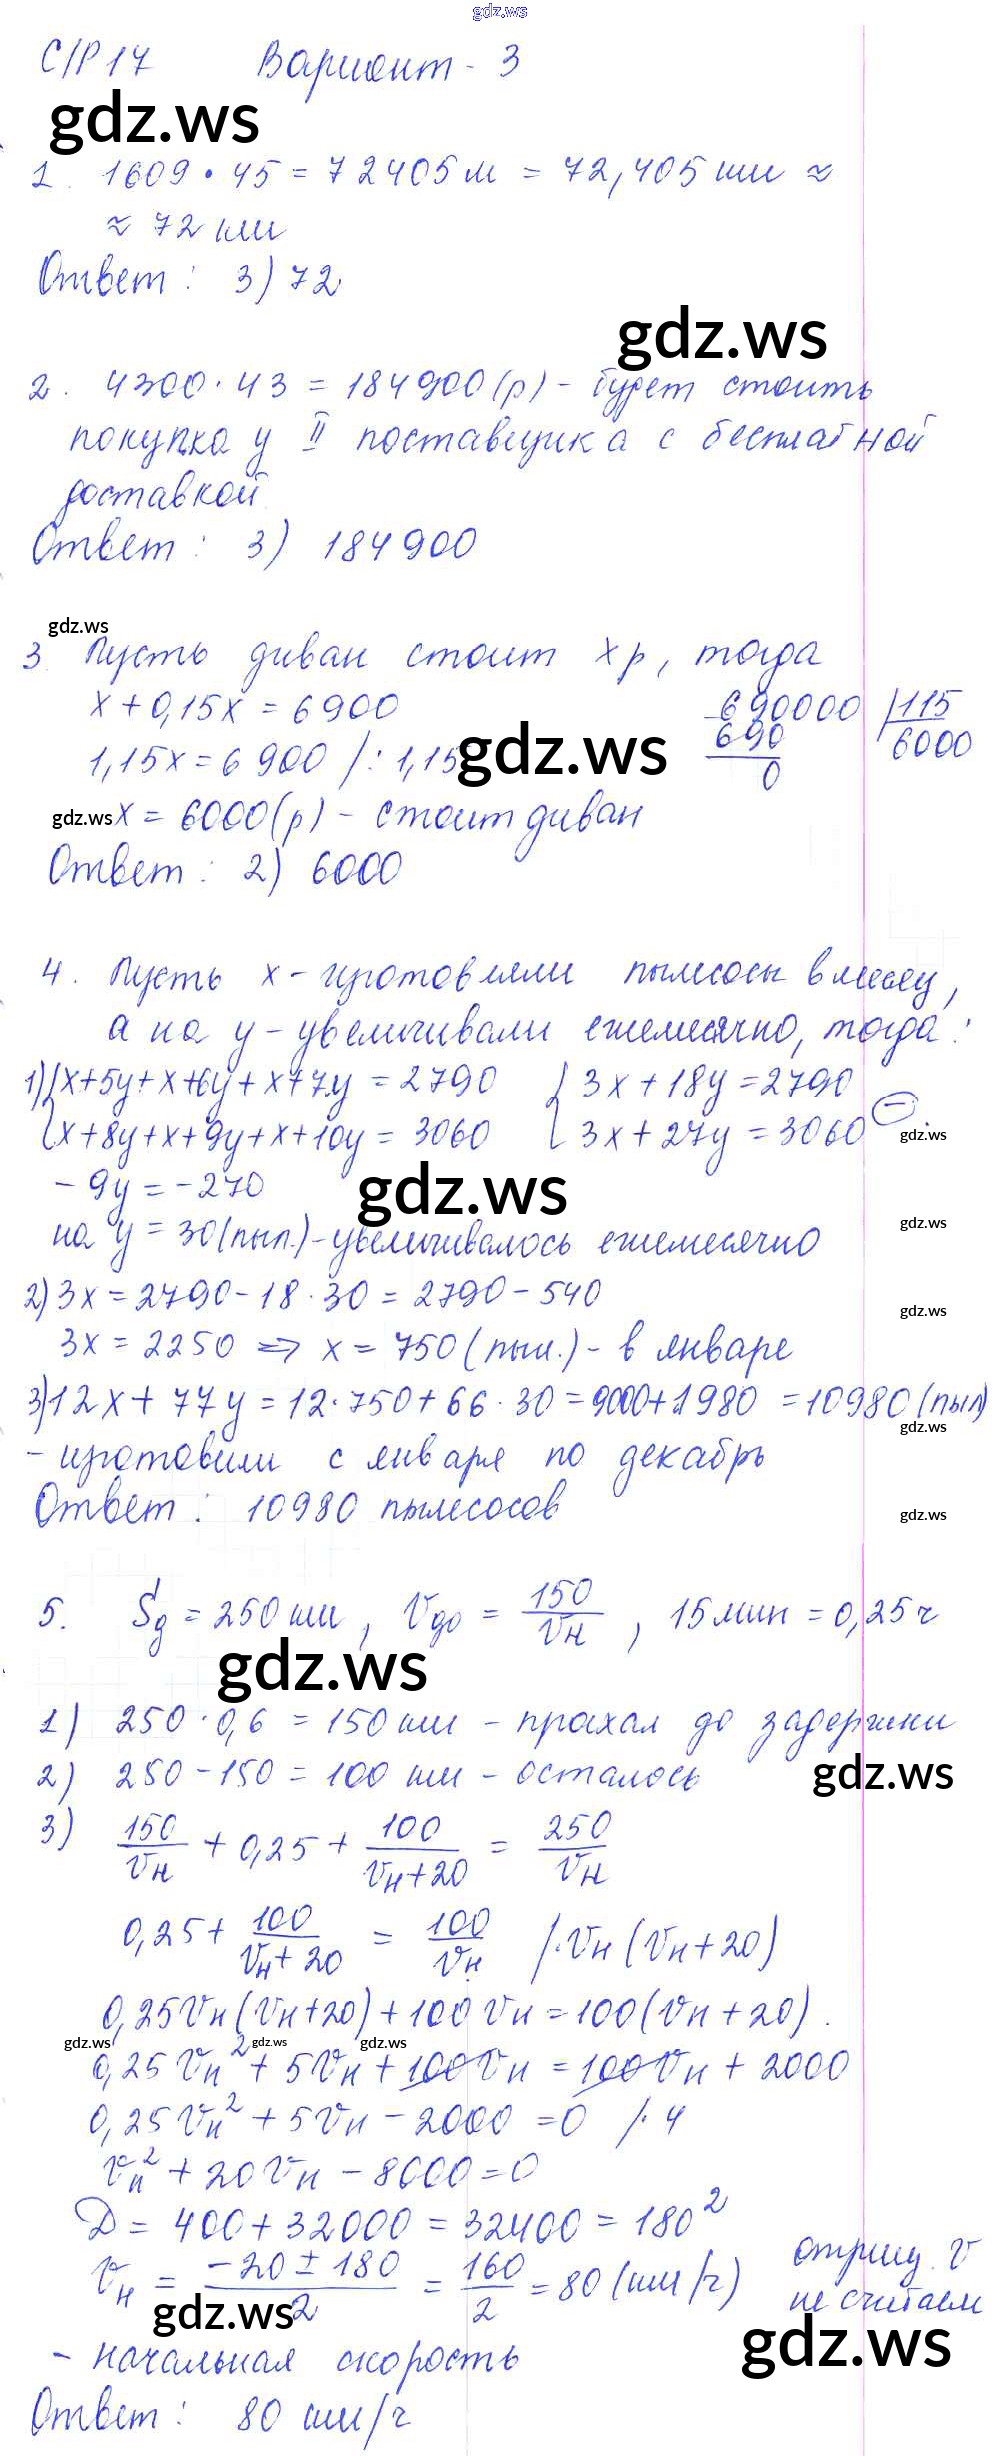 gdz.ws
С/Р 17 Вариант - 3
gdz.ws
1. 1609 · 45 = 72405 м = 72,405 км ≈
≈ 72 км
Ответ: 3) 72
gdz.ws
2. 4300 · 43 = 184900 (р) - будет стоить
покупка у II поставщика с бесплатной
доставкой
Ответ: 3) 184900
gdz.ws
3. Пусть диван стоит x р, тогда
x + 0,15x = 6900
690000 | 115
1,15x = 6900 / : 1,15
690 6000
gdz.ws
0
gdz.ws
x = 6000 (р) - стоит диван
Ответ: 2) 6000
4. Пусть x - изготовляли пылесосы в месяц,
а на y - увеличивали ежемесячно, тогда:
1) { x+5y+x+6y+x+7y = 2790 { 3x + 18y = 2790
{ x+8y+x+9y+x+10y = 3060 { 3x + 27y = 3060 (-)
gdz.ws
- 9y = - 270
gdz.ws
gdz.ws
на y = 30 (пыл.) - увеличивалось ежемесячно
2) 3x = 2790 - 18 · 30 = 2790 - 540
gdz.ws
3x = 2250 => x = 750 (пыл.) - в январе
3) 12x + 77y = 12·750 + 66 · 30 = 9000 + 1980 = 10980 (пыл)
gdz.ws
- изготовили с января по декабрь
Ответ: 10980 пылесосов
gdz.ws
5. Sд = 250 км, Vдо = 150/Vн, 15 мин = 0,25 ч
gdz.ws
1) 250 · 0,6 = 150 км - проехал до задержки
2) 250 - 150 = 100 км - осталось
gdz.ws
3) 150/Vн + 0,25 + 100/(Vн+20) = 250/Vн
0,25 + 100/(Vн+20) = 100/Vн / · Vн (Vн + 20)
0,25Vн (Vн+20) + 100Vн = 100 (Vн + 20).
gdz.ws gdz.ws gdz.ws
0,25Vн² + 5Vн + 100Vн = 100Vн + 2000
0,25Vн² + 5Vн - 2000 = 0 / · 4
Vн² + 20Vн - 8000 = 0
D = 400 + 32000 = 32400 = 180²
Vн = (-20 ± 180)/2 = 160/2 = 80 (км/ч) отриц. V
не считаем
gdz.ws
gdz.ws
- начальная скорость
Ответ: 80 км/ч